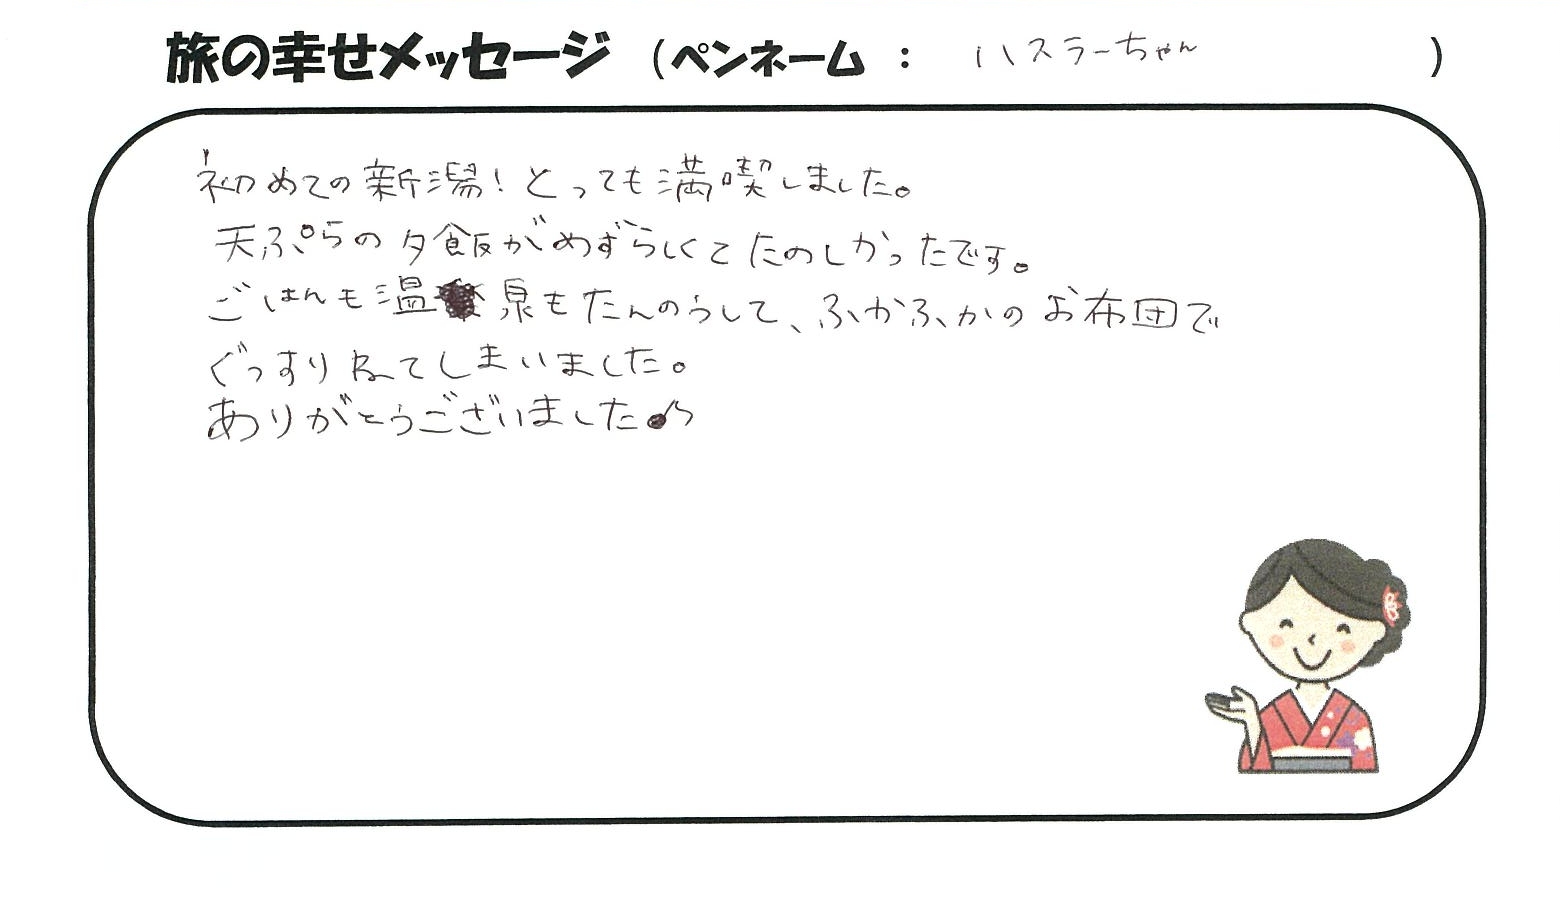 旅の幸せメッセージ (ペンネーム : ハスラーちゃん )
初めての新潟！とっても満喫しました。
天ぷらの夕飯がめずらしくてたのしかったです。
ごはんも温泉もたんのうして、ふかふかのお布団で
ぐっすりねてしまいました。
ありがとうございました♪